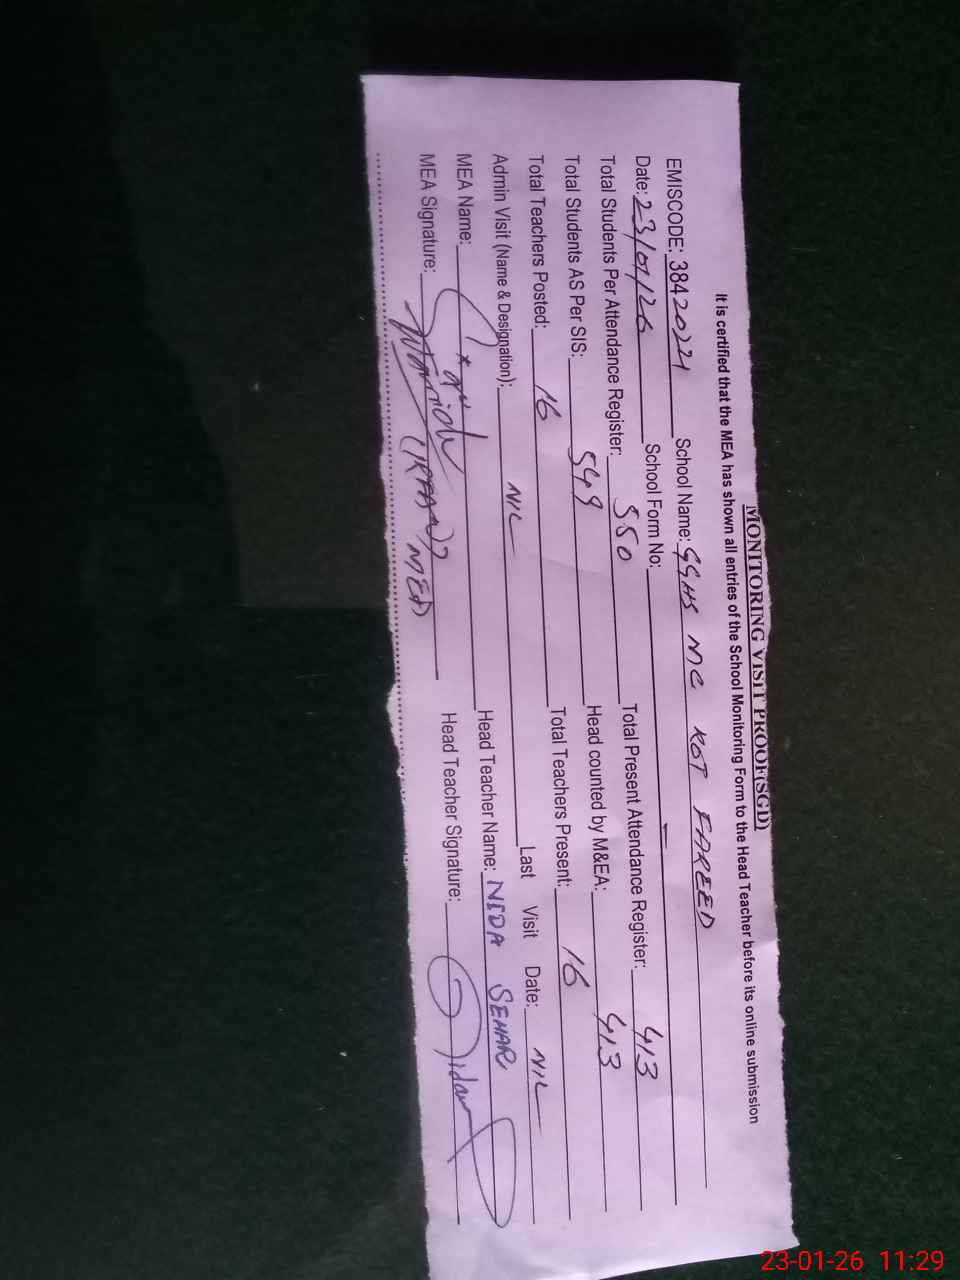 MONITORING VISIT PROOF(SGD)
It is certified that the MEA has shown all entries of the School Monitoring Form to the Head Teacher before its online submission
EMISCODE: 38420221 School Name: GGHS MC KOT FAREED
Date: 23/01/26 School Form No:
Total Students Per Attendance Register: 550 Total Present Attendance Register: 413
Total Students AS Per SIS: 549 Head counted by M&EA: 413
Total Teachers Posted: 16 Total Teachers Present: 16
Admin Visit (Name & Designation): NIL Last Visit Date: NIL
MEA Name: Head Teacher Name: NIDA SEHAR
MEA Signature: Head Teacher Signature:
23-01-26 11:29